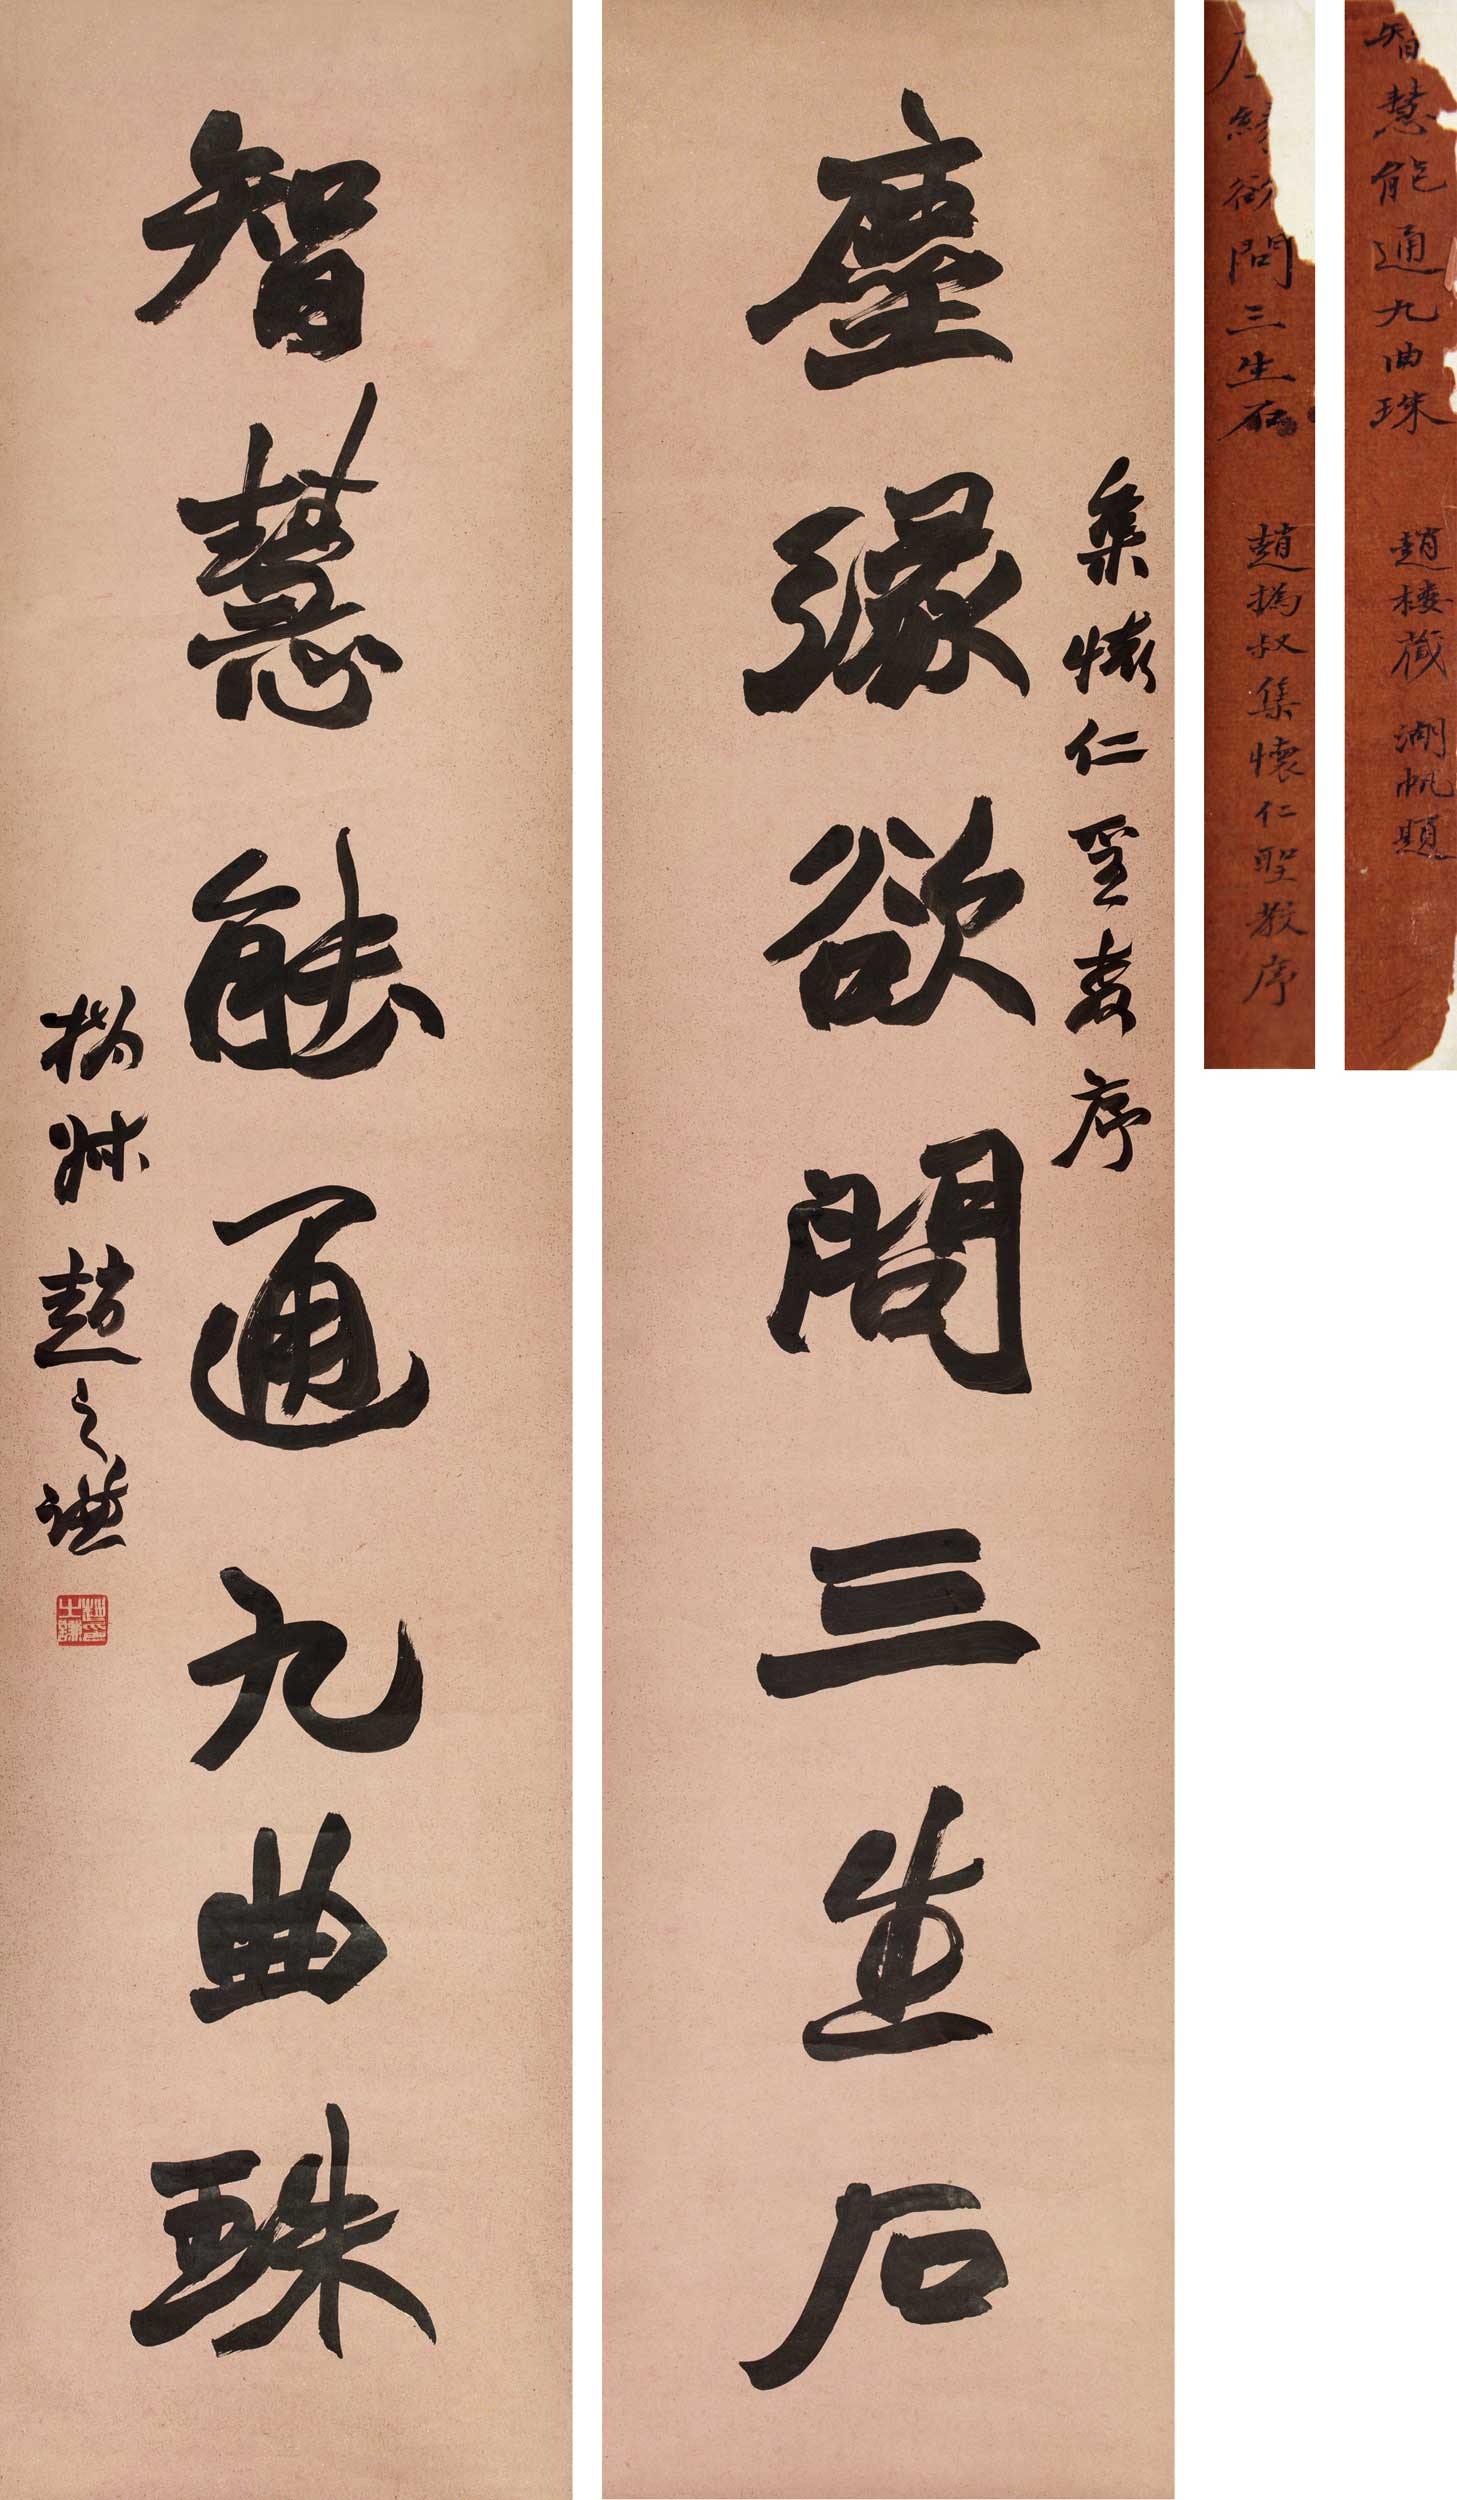 塵緣欲問三生石
集懷仁聖教序
智慧能通九曲珠
撝叔趙之謙
趙之謙印
緣欲問三生石
趙撝叔集懷仁聖教序
智慧能通九曲珠
趙樓藏 湖帆題